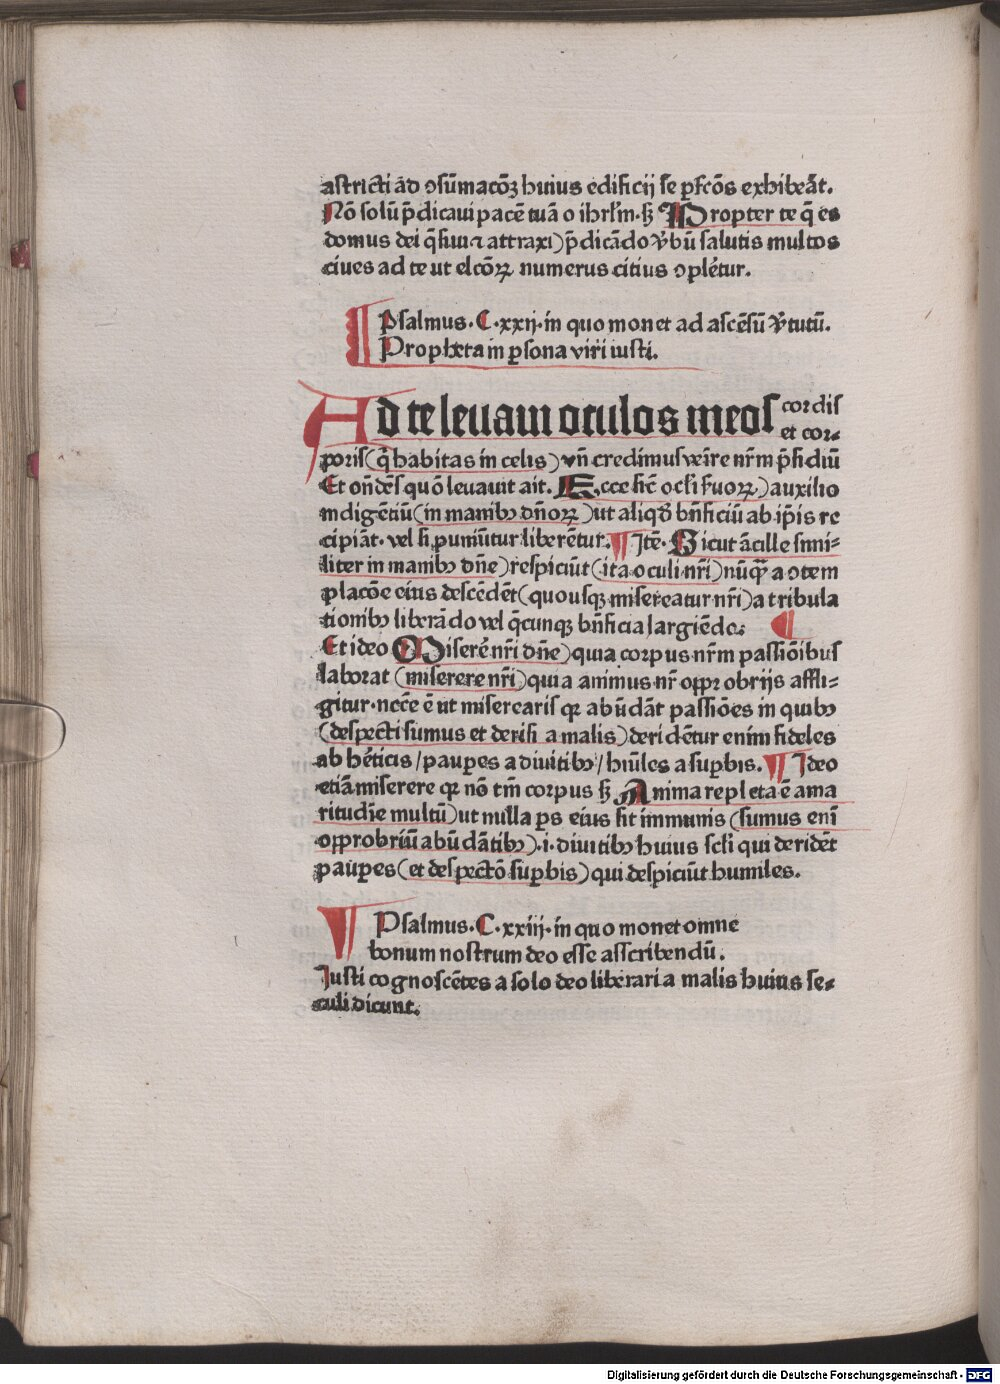 astricti ad ↄsūmacōꝫ huius edificij se ꝑfcōs exhibeāt.
Nō solū p̄dicaui pacē tuā o ihrl'm. sꝫ Propter te q̄ es
domus dei q̄siui ⁊ attraxi) p̄dicādo v̓bū salutis multos
ciues ad te ut elcōꝝ numerus citius ↄplet̄ur.
Psalmus. C.xxij. in quo monet ad ascēsū v̓tutū.
Propheta in ꝑsona viri iusti.
Ad te leuaui oculos meos cordis
et cor⸗
poris (q̄ habitas in celis) vn̄ credimus venire nr̄m p̄sidiū
Et on̄dēs quō leuauit ait. Ecce sic̄ ocl'i s̓uoꝝ) auxilio
indigētiū (in manibꝰ dn̄oꝝ) ut aliqd̓ bn̄ficiū ab ip̄is re
cipiāt. vel si puniūtur liberētur. ¶ Itē. Sicut ācille simi⸗
liter in manibꝰ dn̄e) respiciūt (ita oculi nr̄i) nūq̄ꝫ a ↄtem
placōe eius descēdēt (quousqꝫ misereatur nr̄i) a tribula
tionibꝰ liberādo vel q̄cunqꝫ bn̄ficia largiēdo: ¶
Et ideo Miserē nr̄i dn̄e) quia corpus nr̄m passiōibus
laborat (miserere nr̄i) quia animus nr̄ oꝑꝑobrijs affli⸗
gitur. necc̄e ē ut miserearis qꝛ abūdāt passiōes in quibꝰ
(despecti sumus et derisi a malis) deridētur enim fideles
ab hēticis / pauꝑes a diuitibꝰ / hūiles a suꝑbis. ¶ Ideo
etiā miserere qꝛ nō tm̄ corpus sꝫ Anima repleta ē ama
ritudīe multū) ut nulla ꝑs eius sit immunis (sumus enī
oꝑꝓbriū abūdātibꝰ). i. diuitibꝰ huius scl'i qui deridēt
pauꝑes (et despectō suꝑbis) qui despiciūt humiles.
¶ Psalmus. C.xxiij. in quo monet omne
bonum nostrum deo esse asscribendū.
Justi cognoscētes a solo deo liberari a malis huius se⸗
culi dicunt.
Digitalisierung gefördert durch die Deutsche Forschungsgemeinschaft - DFG